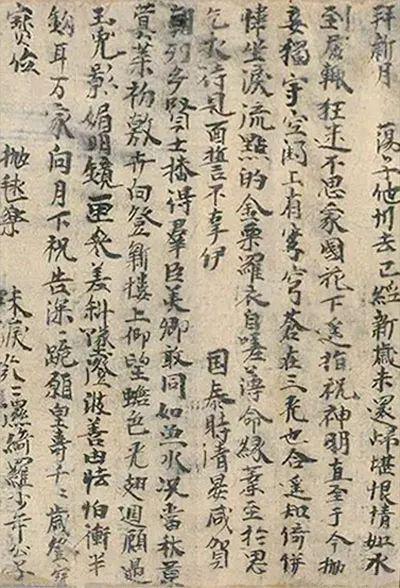 拜新月　蕩子他州去已經新歲未還歸堪恨情如水
到處輙狂迷不思家國花下遙指祝神明直至于今拋
妾獨守空閨上有穹蒼在三光也合遙知倚倂
幃坐淚流點的金粟羅衣自嗟薄命緣業至於思
乞求待見面誓不辜伊　國泰時清晏咸賀
朝列多賢士播得羣臣美卿敢同如魚水況當秋景
蓂葉初敷卉向登新樓上仰望蟾色光翅迴顧遇
玉兔影媚明鏡匣參差斜墜澄波善由怯怕衝半
鈎耳万家向月下祝告深〻跪願皇壽千〻歲登
寶位　拋毬樂　珠淚紛〻濕綺羅少年公子